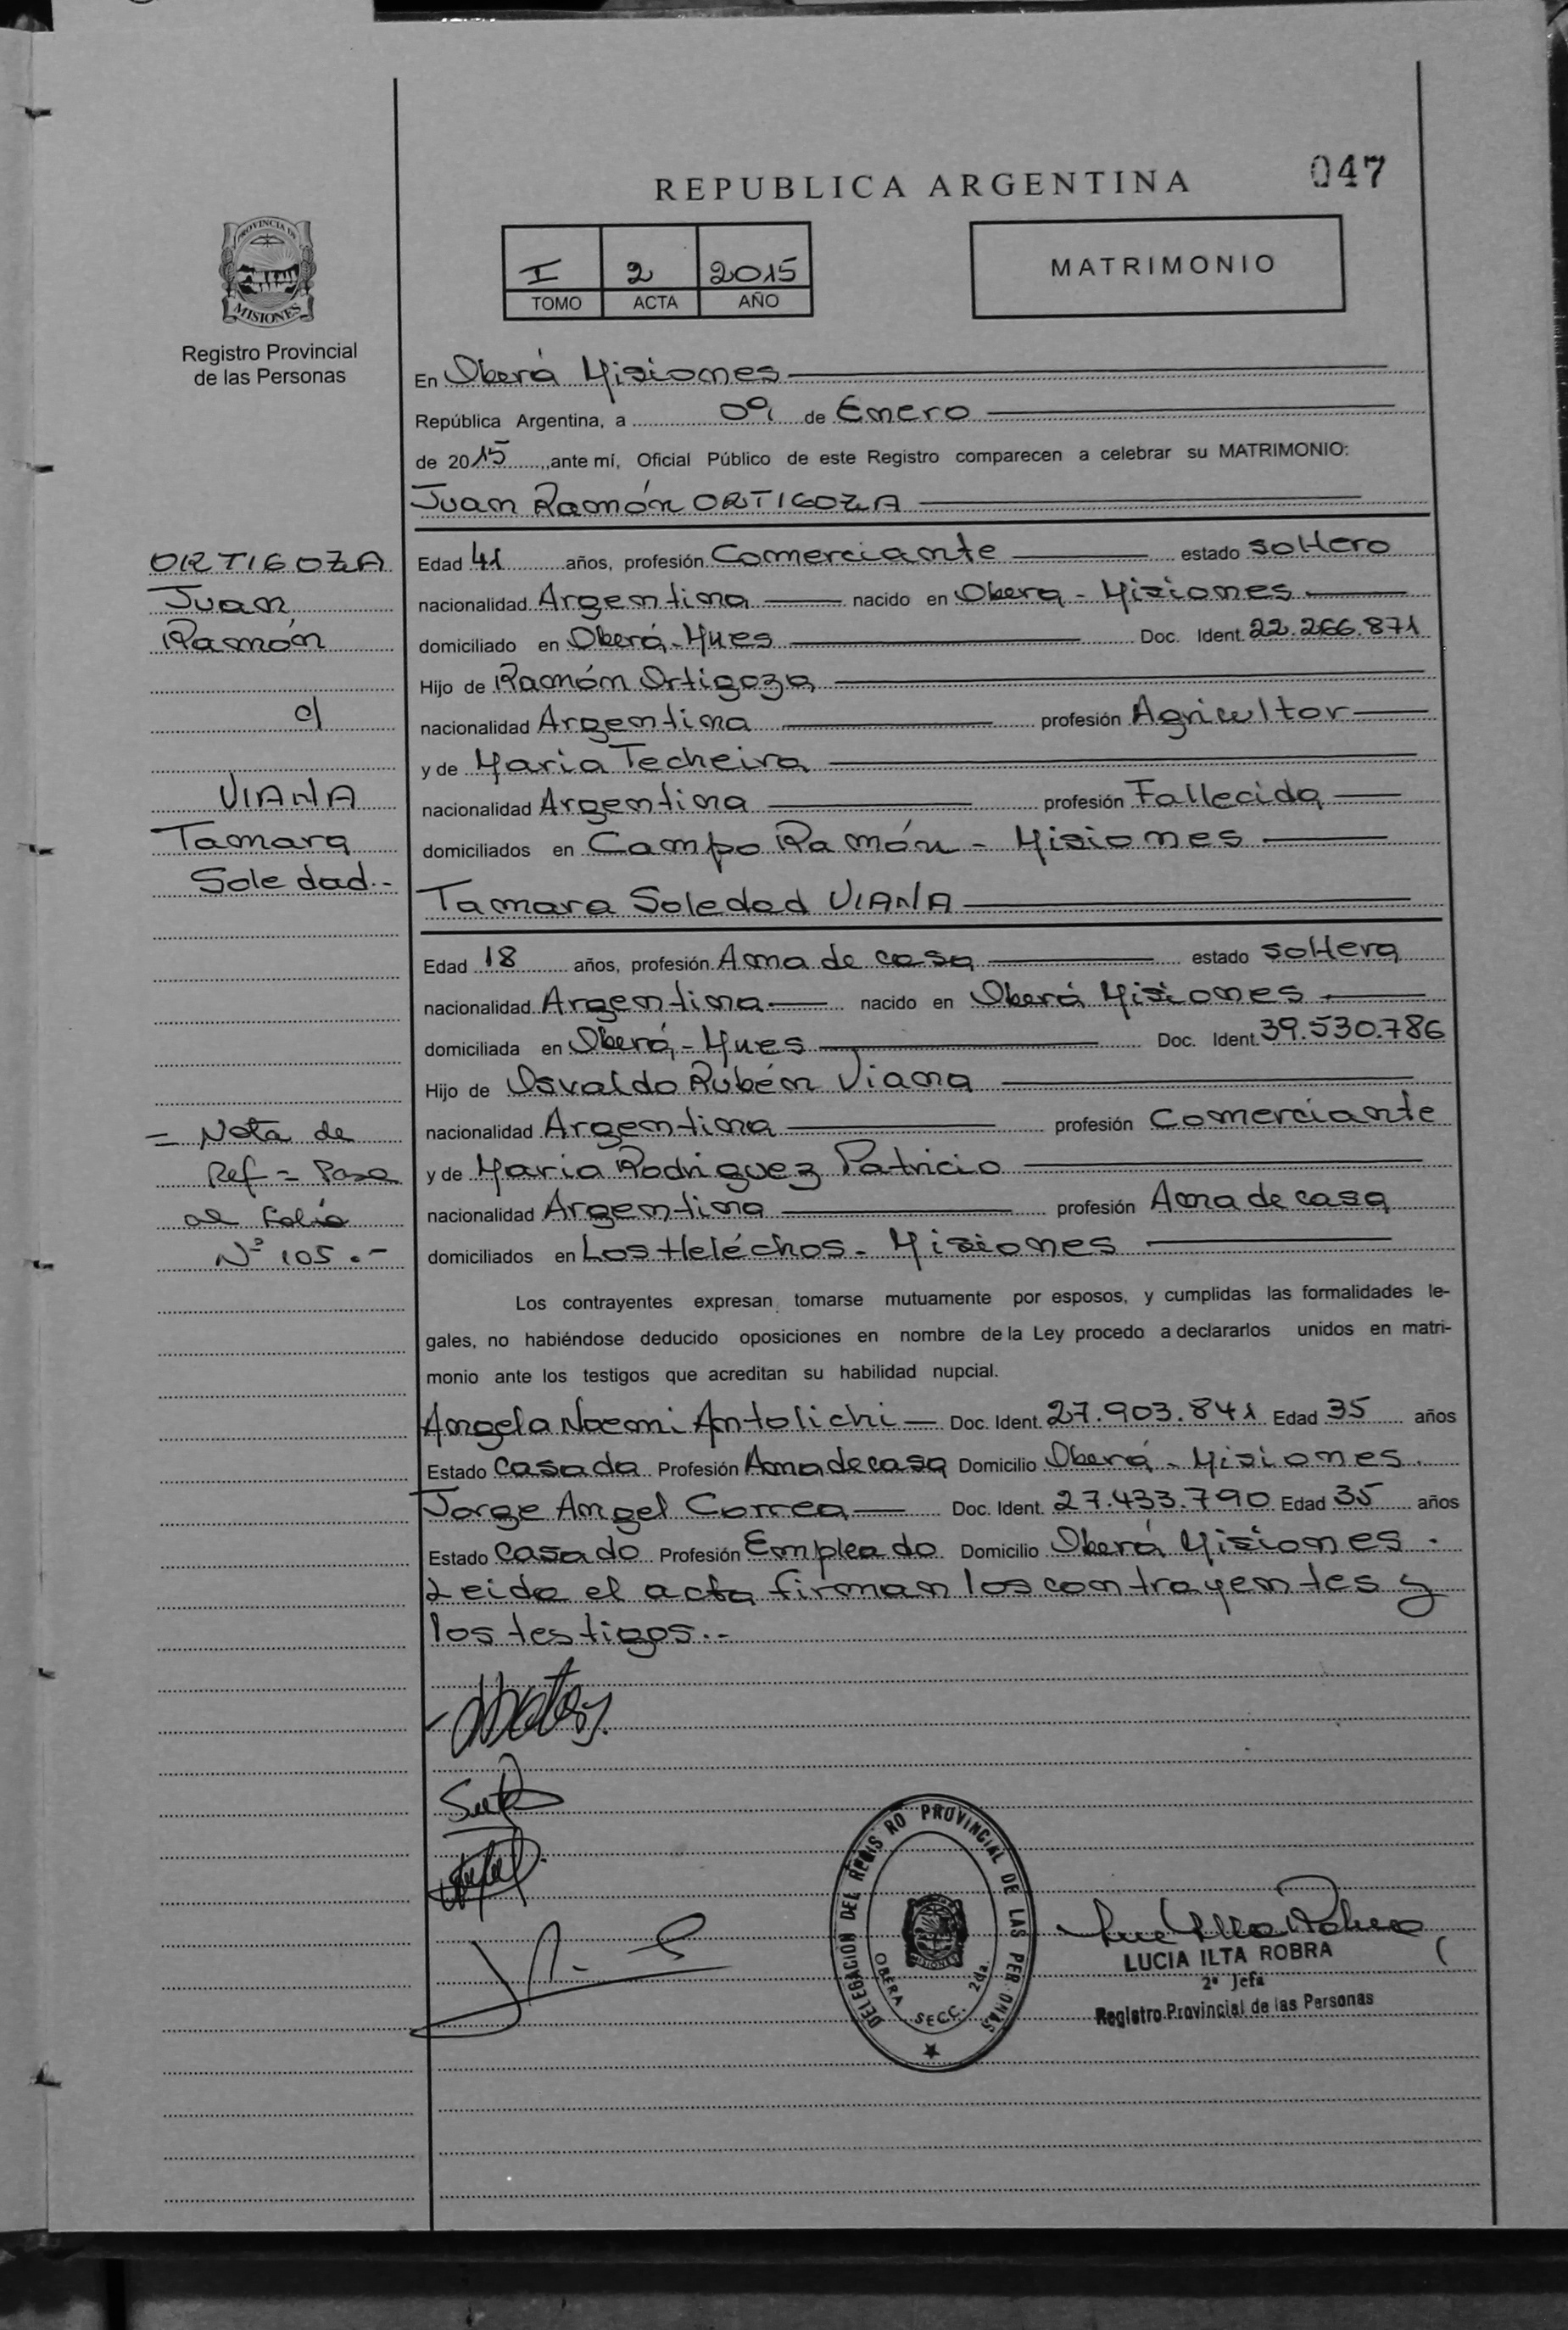 047
REPUBLICA ARGENTINA
PROVINCIA DE
MISIONES
Registro Provincial
de las Personas
I 2 2015
TOMO ACTA AÑO
MATRIMONIO
En Oberá Misiones
República Argentina, a 09 de Enero
de 2015, ante mí, Oficial Público de este Registro comparecen a celebrar su MATRIMONIO:
Juan Ramón ORTIGOZA
ORTIGOZA
Juan
Ramón
c/
VIANA
Tamara
Soledad.-
Edad 41 años, profesión Comerciante estado soltero
nacionalidad Argentina nacido en Obera - Misiones
domiciliado en Oberá - Mnes Doc. Ident. 22.266.871
Hijo de Ramón Ortigoza
nacionalidad Argentina profesión Agricultor
y de Maria Techeira
nacionalidad Argentina profesión Fallecida
domiciliados en Campo Ramón - Misiones
Tamara Soledad VIANA
Edad 18 años, profesión Ama de casa estado soltera
nacionalidad Argentina nacido en Oberá Misiones
domiciliada en Oberá - Mnes Doc. Ident. 39.530.786
Hijo de Osvaldo Rubén Viana
nacionalidad Argentina profesión Comerciante
y de Maria Rodriguez Patricio
nacionalidad Argentina profesión Ama de casa
domiciliados en Los Heléchos - Misiones
= Nota de
Ref = Pasa
al Folio
N° 105.-
Los contrayentes expresan tomarse mutuamente por esposos, y cumplidas las formalidades le-
gales, no habiéndose deducido oposiciones en nombre de la Ley procedo a declararlos unidos en matri-
monio ante los testigos que acreditan su habilidad nupcial.
Angela Noemi Antolichi Doc. Ident. 27.903.841 Edad 35 años
Estado Casada Profesión Ama de casa Domicilio Oberá - Misiones.
Jorge Angel Correa Doc. Ident. 27.433.790 Edad 35 años
Estado Casado Profesión Empleado Domicilio Oberá Misiones.
Leida el acta firman los contrayentes y
los testigos.-
DELEGACION DEL REGISRO PROVINCIAL DE LAS PERONAS
OBERA SECC. 2da.
MISIONES
LUCIA ILTA ROBRA
2ª Jefa
Registro Provincial de las Personas